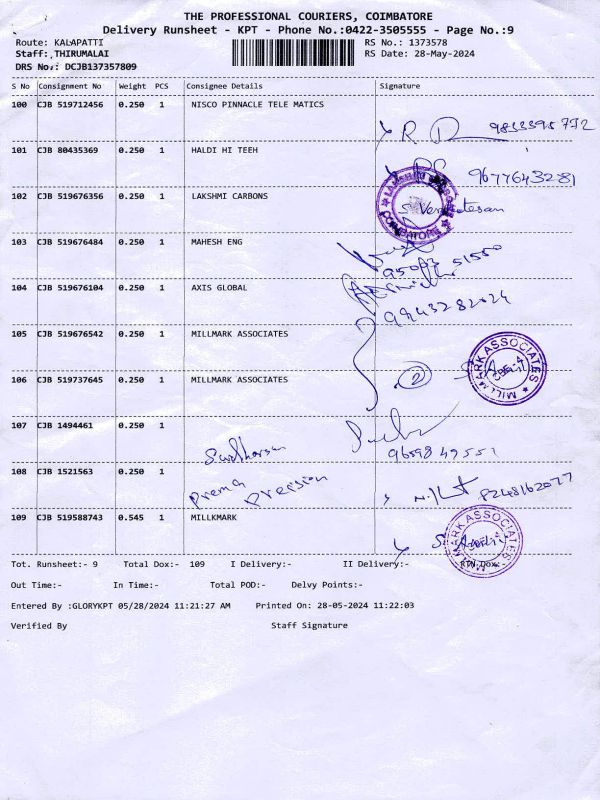 THE PROFESSIONAL COURIERS, COIMBATORE
Delivery Runsheet - KPT - Phone No.:0422-3505555 - Page No.:9
Route: KALAPATTI RS No.: 1373578
Staff: THIRUMALAI RS Date: 28-May-2024
DRS No.: DCJB137357809
S No Consignment No Weight PCS Consignee Details Signature
100 CJB 519712456 0.250 1 NISCO PINNACLE TELE MATICS
101 CJB 80435369 0.250 1 HALDI HI TEEH
9677643281
102 CJB 519676356 0.250 1 LAKSHMI CARBONS
S. Venkatesan
103 CJB 519676484 0.250 1 MAHESH ENG
104 CJB 519676104 0.250 1 AXIS GLOBAL
9943282024
105 CJB 519676542 0.250 1 MILLMARK ASSOCIATES
MILLMARK ASSOCIATES
106 CJB 519737645 0.250 1 MILLMARK ASSOCIATES
2
107 CJB 1494461 0.250 1
9659849551
108 CJB 1521563 0.250 1
Prema Precision
109 CJB 519588743 0.545 1 MILLKMARK
MILLMARK ASSOCIATES
Tot. Runsheet:- 9 Total Dox:- 109 I Delivery:- II Delivery:- RTN Dox:-
Out Time:- In Time:- Total POD:- Delvy Points:-
Entered By :GLORYKPT 05/28/2024 11:21:27 AM Printed On: 28-05-2024 11:22:03
Verified By Staff Signature